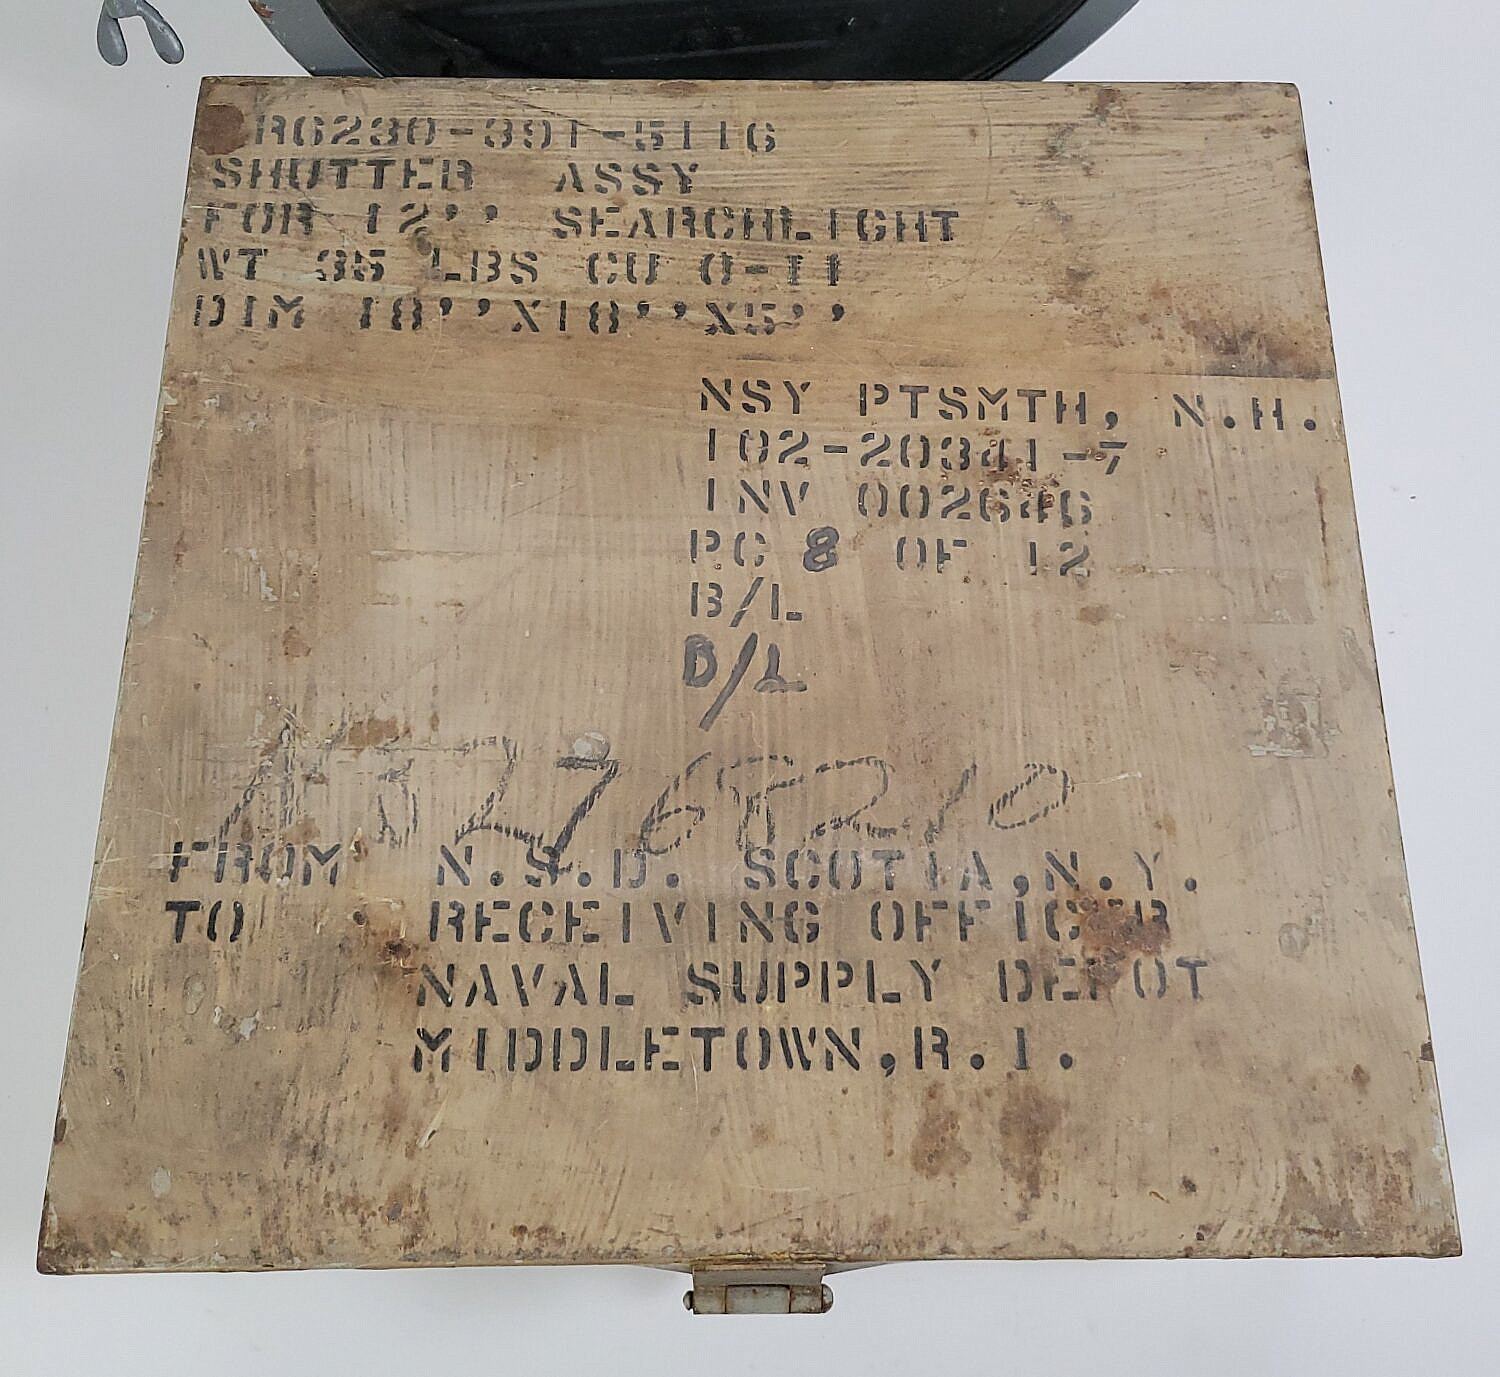 R6230-391-5116
SHUTTER ASSY
FOR 12'' SEARCHLIGHT
WT 35 LBS CU 0-11
DIM 18''X18''X5''
NSY PTSMTH, N.H.
102-20341-7
INV 002646
PC 8 OF 12
B/L
B/L
FROM N.S.D. SCOTIA,N.Y.
TO RECEIVING OFFICER
NAVAL SUPPLY DEPOT
MIDDLETOWN,R.I.